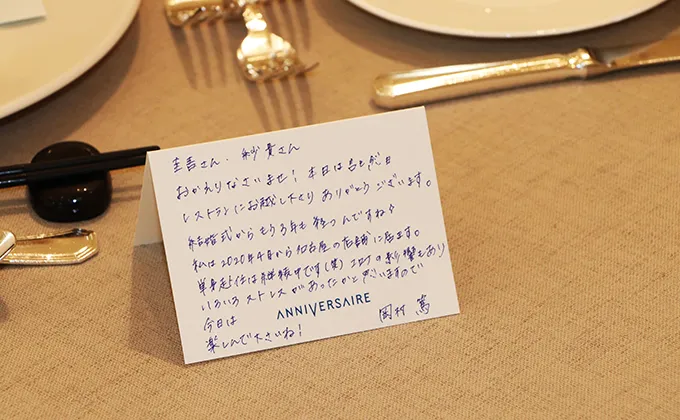 圭吾さん・紗貴さん
おかえりなさいませ！本日は記念日
レストランにお越し下さり ありがとうございます。
結婚式からもう3年も経つんですね♪
私は2020年4月から名古屋の店舗に居ます。
単身赴任は継続中です(笑) コロナの影響もあり
いろいろストレスがあったかと思いますので
今日は
楽しんで下さいね！
ANNIVERSAIRE
岡村 篤